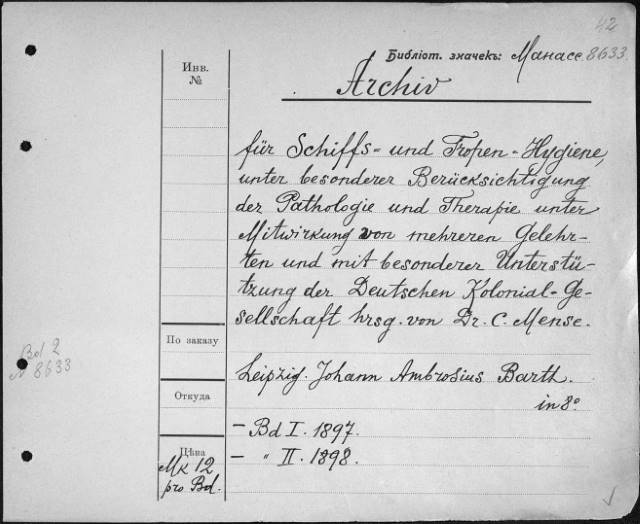 42
Библіот. значекъ: Манасс. 8633.
Инв.
№
Archiv
für Schiffs- und Tropen-Hygiene,
unter besonderer Berücksichtigung
der Pathologie und Therapie unter
Mitwirkung von mehreren Gelehr-
ten und mit besonderer Unterstü-
tzung der Deutschen Kolonial-Ge-
sellschaft hrsg. von Dr. C. Mense.
По заказу
Bd 2
№ 8633
Leipzig. Johann Ambrosius Barth.
Откуда
in 8°
— Bd I. 1897.
Цѣна
— " II. 1898.
Mk 12
pro Bd.